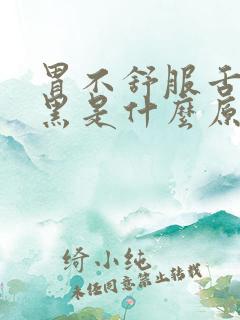 胃不舒服舌
黑是什麼原
绮小纯
未经同意禁止转载